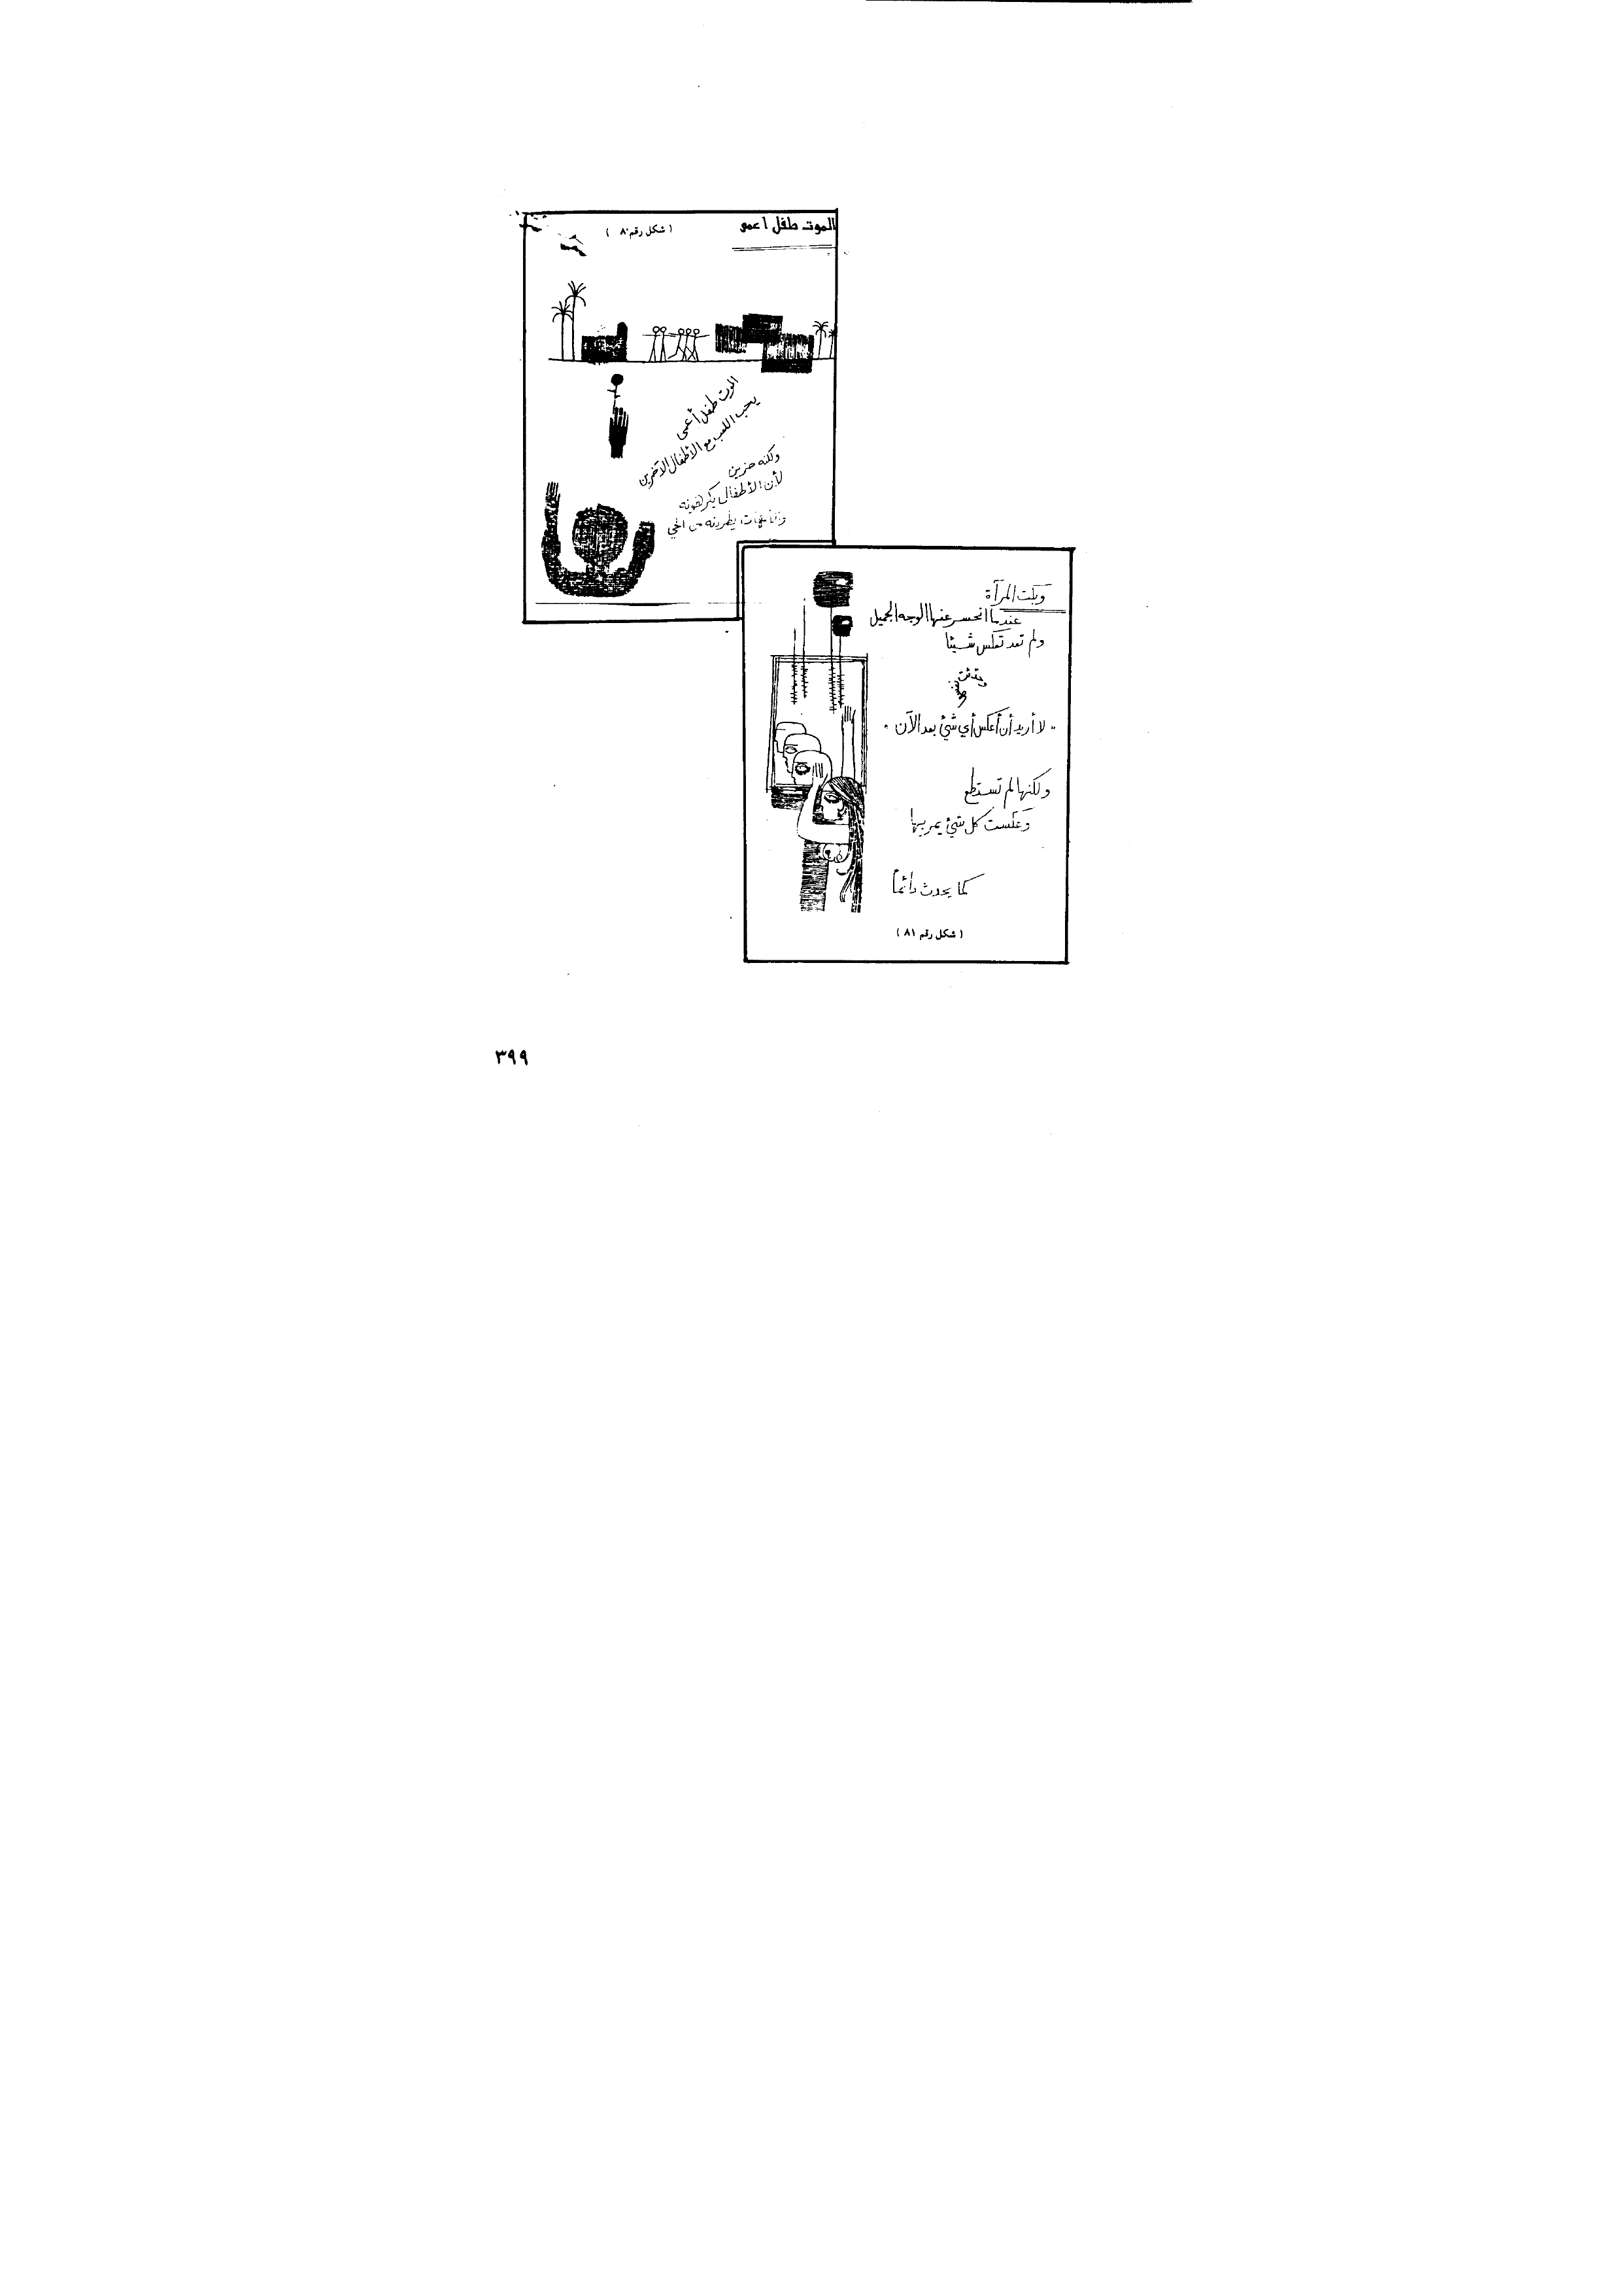 الموت طفل أعمى
( شكل رقم ٨٠ )
الموت طفل أعمى
يحب اللعب مع الأطفال الآخرين
ولكنه حزين
لأن الأطفال يكرهونه
يطردنه من الحي
وبكت المرآة
عندما انحسر عنها الوجه الجميل
ولم تعد تعكس شيئا
" لا أريد أن أعكس أي شئ بعد الآن "
ولكنها لم تستطع
وعكست كل شئ يمر بها
كما يحدث دائماً
( شكل رقم ٨١ )
٣٩٩